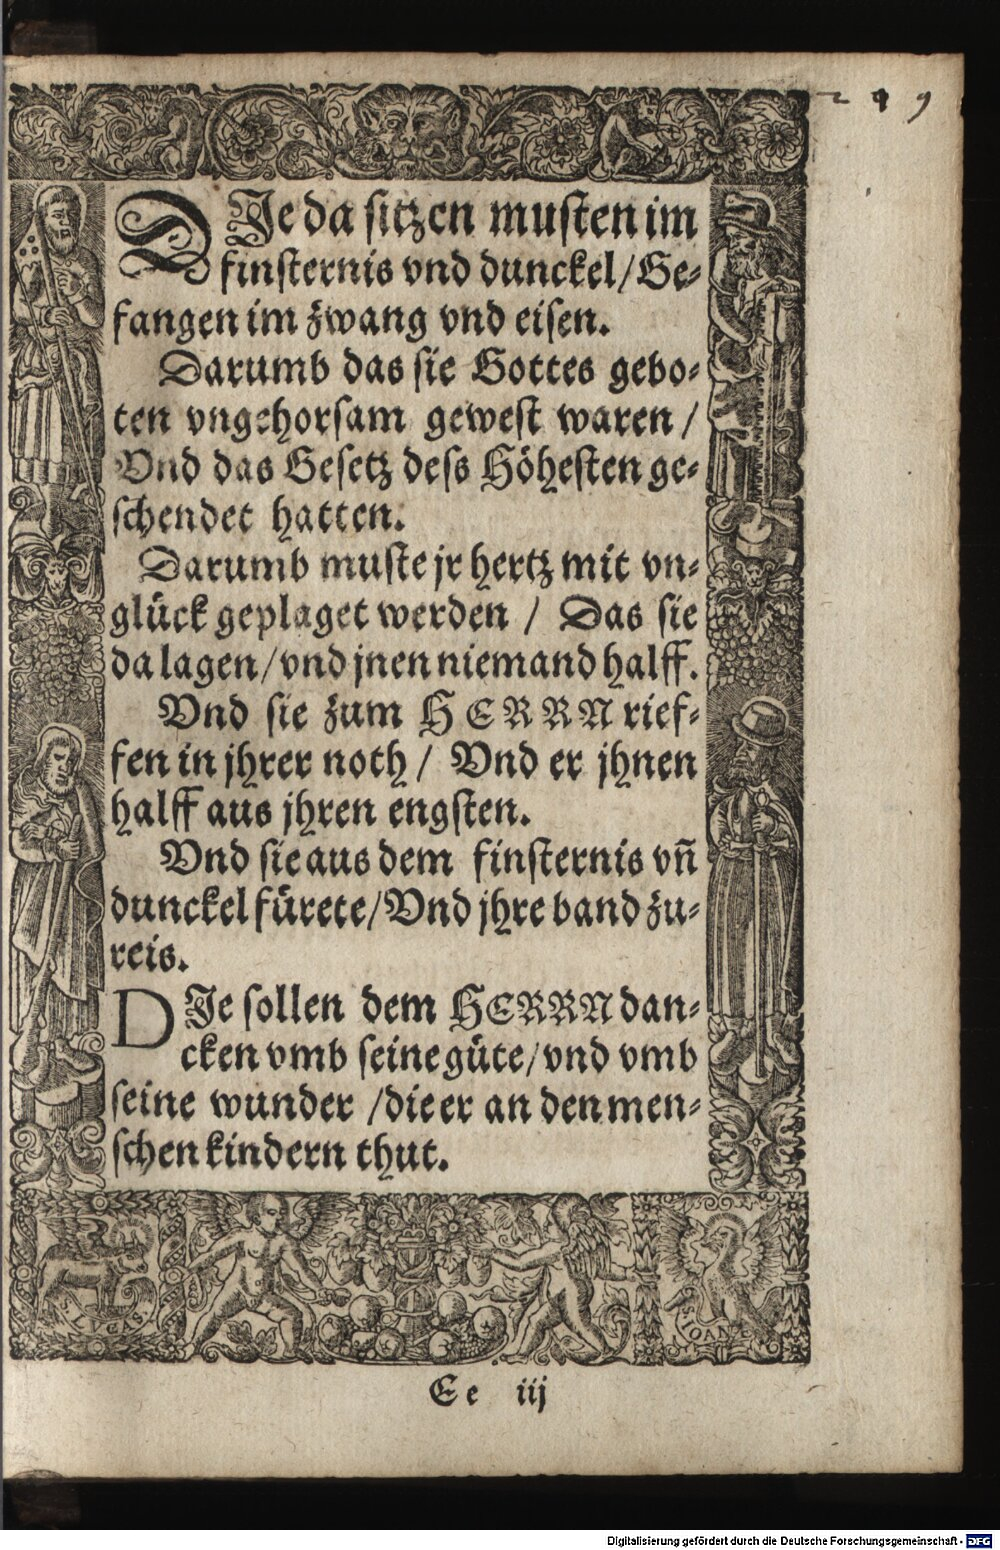 219
DJe da sitzen musten im
finsternis vnd dunckel / Ge-
fangen im zwang vnd eisen.
Darumb das sie Gottes gebo-
ten vngehorsam gewest waren /
Vnd das Gesetz dess Höhesten ge-
schendet hatten.
Darumb muste jr hertz mit vn-
glück geplaget werden / Das sie
da lagen / vnd jnen niemand halff.
Vnd sie zum HERRN rief-
fen in jhrer noth / Vnd er jhnen
halff aus jhren engsten.
Vnd sie aus dem finsternis vñ
dunckel fürete / Vnd jhre band zu-
reis.
DJe sollen dem HERRN dan-
cken vmb seine güte / vnd vmb
seine wunder / die er an den men-
schen kindern thut.
S LVCAS
S IOANE
Ee iij
Digitalisierung gefördert durch die Deutsche Forschungsgemeinschaft - DFG